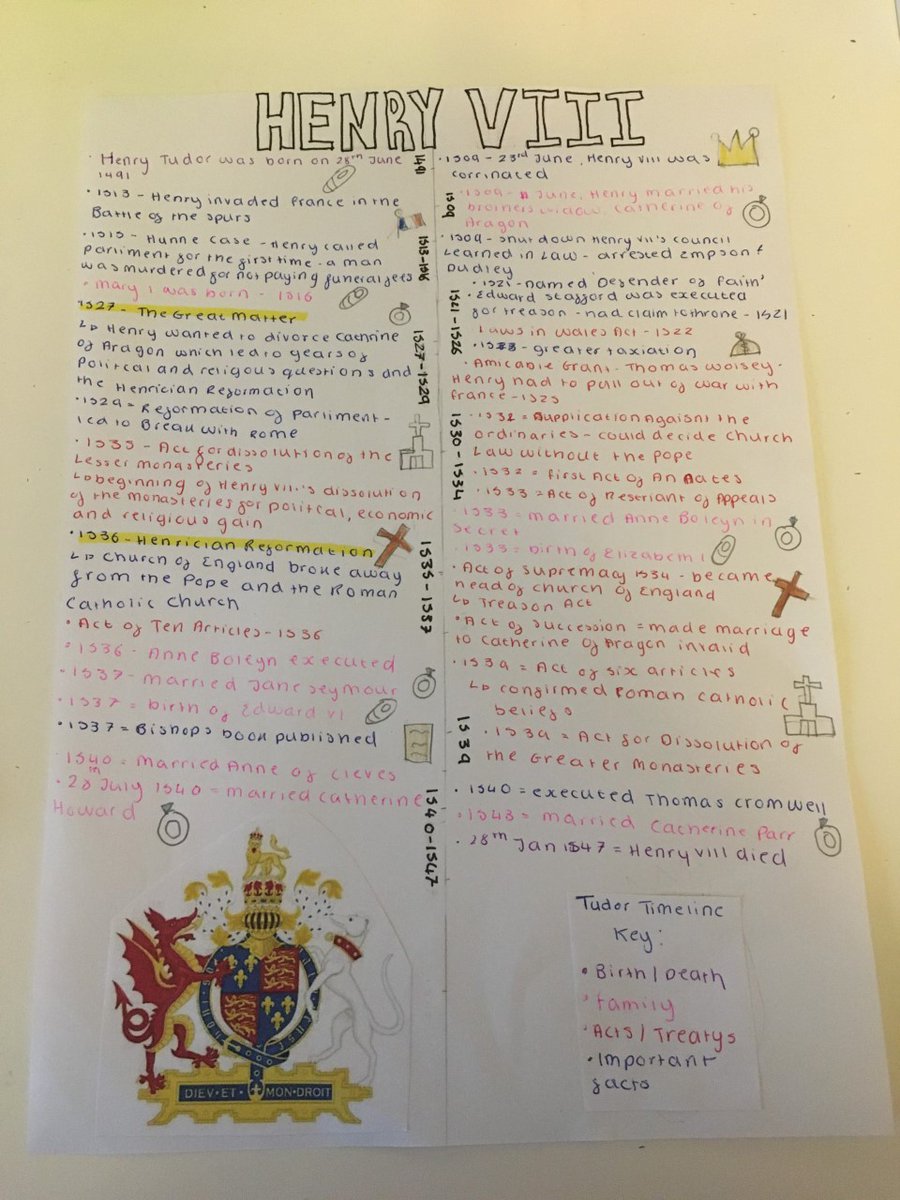 HENRY VIII
• Henry Tudor was born on 28th June
1491
• 1513 - Henry invaded france in the
Battle of the Spurs
• 1515 - Hunne Case - Henry called
parliment for the first time - a man
was murdered for not paying funeral fees
• Mary I was born - 1516
• 1527 - The Great Matter
↳ Henry wanted to divorce Cathrine
of Aragon which led to years of
political and religous questions and
the Henrician Reformation
• 1529 = Reformation of parliment -
led to Break with Rome
• 1535 - Act for dissolution of the
Lesser monasteries
↳ beginning of Henry VIII's dissolution
of the monasteries for politcal, economic
and religious gain
• 1536 - Henrician Reformation
↳ Church of England broke away
from the Pope and the Roman
Catholic Church
• Act of Ten Articles - 1536
• 1536 - Anne Boleyn executed
• 1537 - married Jane Seymour
• 1537 = birth of Edward VI
• 1537 = Bishops book published
• 1540 = married Anne of Cleves
• 28th July 1540 = married Catherine
Howard
1491
1509
1513-1516
1521-1526
1527-1529
1530-1534
1535-1537
1539
1540-1547
• 1509 - 23rd June, Henry VIII was
corrinated
• 1509 - June, Henry married his
brothers widow, Catherine of
Aragon
• 1509 - shut down Henry VII's council
Learned in Law - arrested Empson &
Dudley
• 1521 - named 'Defender of Faith'
• Edward Stafford was executed
for treason - had claim to throne - 1521
Laws in Wales Act - 1522
greater taxiation
• Amicable Grant - Thomas Wolsey -
Henry had to pull out of war with
france - 1525
• 1532 = Supplication Against the
ordinaries - could decide church
Law without the pope
• 1532 = first Act of An Aates
• 1533 = Act of Restriant of Appeals
• 1533 = married Anne Boleyn in
secret
• 1533 = birth of Elizabeth I
• Act of Supremacy 1534 - became
head of church of England
↳ Treason Act
• Act of Succession = made marriage
to Catherine of Aragon invalid
• 1539 = Act of six articles
↳ confirmed roman catholic
beliefs
• 1539 = Act for Dissolution of
the Greater Monasteries
• 1540 = executed Thomas Cromwell
• 1543 = married Catherine Parr
• 28th Jan 1547 = Henry VIII died
DIEV·ET MON·DROIT
Tudor Timeline
Key:
• Birth/Death
• Family
• Acts/Treatys
• Important
facts